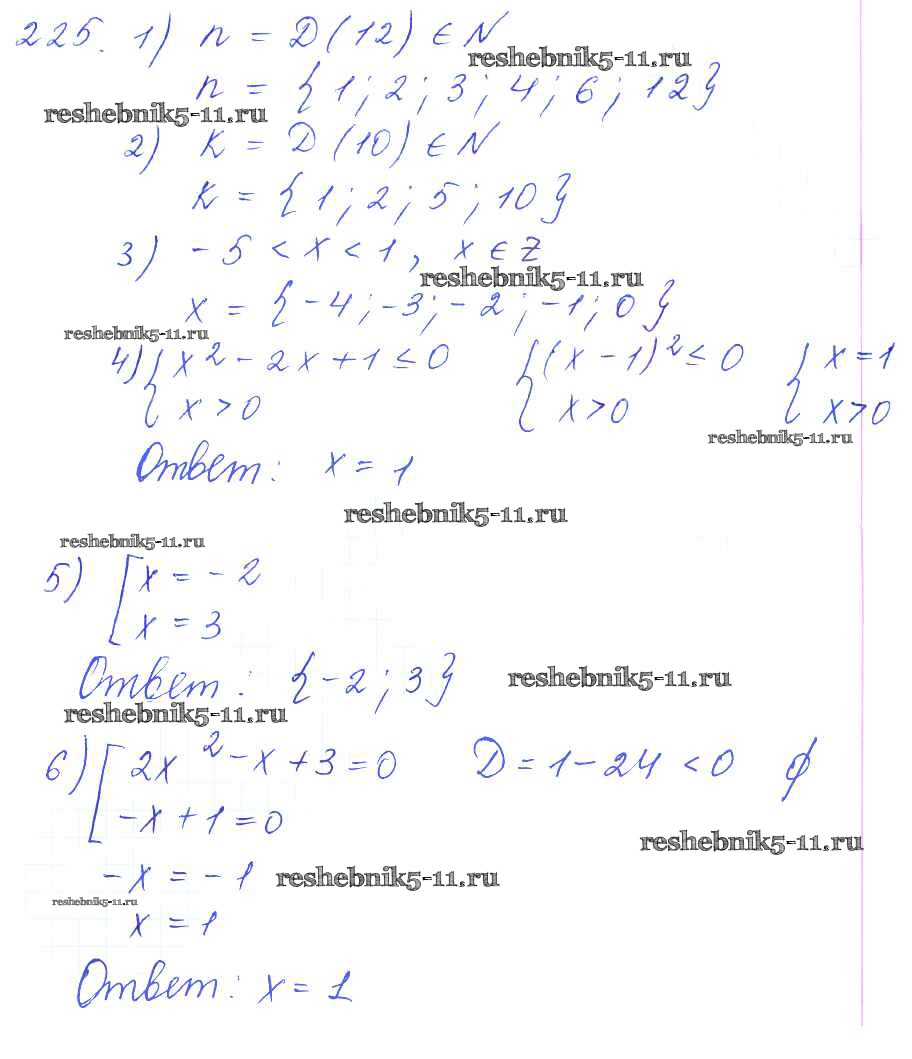 225. 1) n = D(12) ∈ N
reshebnik5-11.ru
n = {1; 2; 3; 4; 6; 12}
reshebnik5-11.ru
2) K = D(10) ∈ N
K = {1; 2; 5; 10}
3) -5 < x < 1, x ∈ Z
reshebnik5-11.ru
x = {-4; -3; -2; -1; 0}
reshebnik5-11.ru
4) { x² - 2x + 1 ≤ 0 { (x - 1)² ≤ 0 { x = 1
x > 0 x > 0 x > 0
reshebnik5-11.ru
Ответ: x = 1
reshebnik5-11.ru
reshebnik5-11.ru
5) [ x = -2
x = 3
Ответ: {-2; 3}
reshebnik5-11.ru
reshebnik5-11.ru
6) [ 2x² - x + 3 = 0 D = 1 - 24 < 0 ∅
-x + 1 = 0
reshebnik5-11.ru
-x = -1
reshebnik5-11.ru
reshebnik5-11.ru
x = 1
Ответ: x = 1